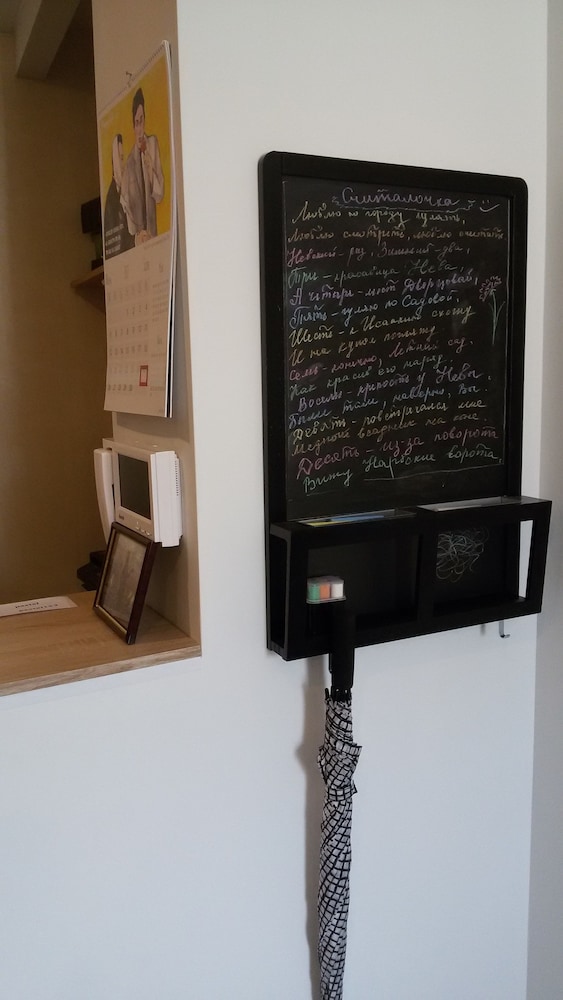 Считалочка
Люблю по городу гулять,
Люблю смотреть, люблю считать
Невский - раз, Зимний - два,
Три - красавица Нева,
А четыре - мост Дворцовый,
Пять - гуляю по Садовой,
Шесть - к Исаакию схожу
И на купол погляжу
Семь - конечно, Летний сад.
Как красив его наряд.
Восемь - крепость у Невы.
Были там, наверно, Вы.
Девять - повстречался мне
Медный всадник на коне
Десять - из-за поворота
Вижу Нарвские ворота